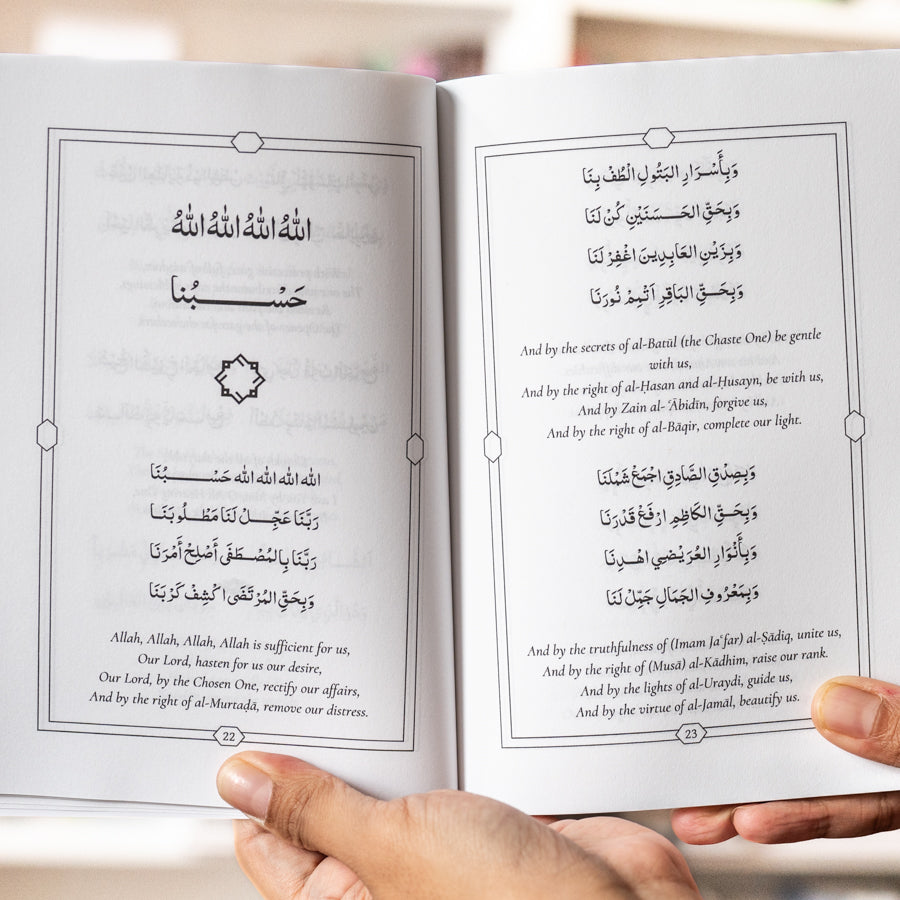 اللهُ اللهُ اللهُ اللهُ
حَسْـــبُنا
الله الله الله الله حَسْـــبُنَا
رَبَّنَا عَجِّـلْ لَنَا مَطْـلُوبَنَـا
رَبَّنَا بِالمُصْـطَفَى أَصْلِحْ أَمْرَنَا
وَبِحَقِّ المُرْتَضَى اكْشِفْ كَرْبَنَا
Allah, Allah, Allah, Allah is sufficient for us,
Our Lord, hasten for us our desire,
Our Lord, by the Chosen One, rectify our affairs,
And by the right of al-Murtaḍā, remove our distress.
22
وَبِأَسْـرَارِ البَتُولِ الْطُفْ بِنَا
وَبِحَقِّ الحَـسَنَيْنِ كُنْ لَنَا
وَبِزَيْنِ العَابِدِينَ اغْفِرْ لَنَا
وَبِحَـقِّ البَاقِرِ اَتْمِمْ نُورَنَا
And by the secrets of al-Batūl (the Chaste One) be gentle
with us,
And by the right of al-Ḥasan and al-Ḥusayn, be with us,
And by Zain al-ʿĀbidīn, forgive us,
And by the right of al-Bāqir, complete our light.
وَبِصِدْقِ الصَّادِقِ اجْمَعْ شَمْلَنَا
وَبِحَـقِّ الكَاظِمِ ارْفَعْ قَدْرَنَا
وَبِأَنْوَارِ العُرَيْضِي اهْدِنَا
وَبِمَعْرُوفِ الجَمَالِ جَمِّلْ لَنَا
And by the truthfulness of (Imam Jaʿfar) al-Ṣādiq, unite us,
And by the right of (Musā) al-Kādhim, raise our rank.
And by the lights of al-Uraydi, guide us,
And by the virtue of al-Jamāl, beautify us.
23